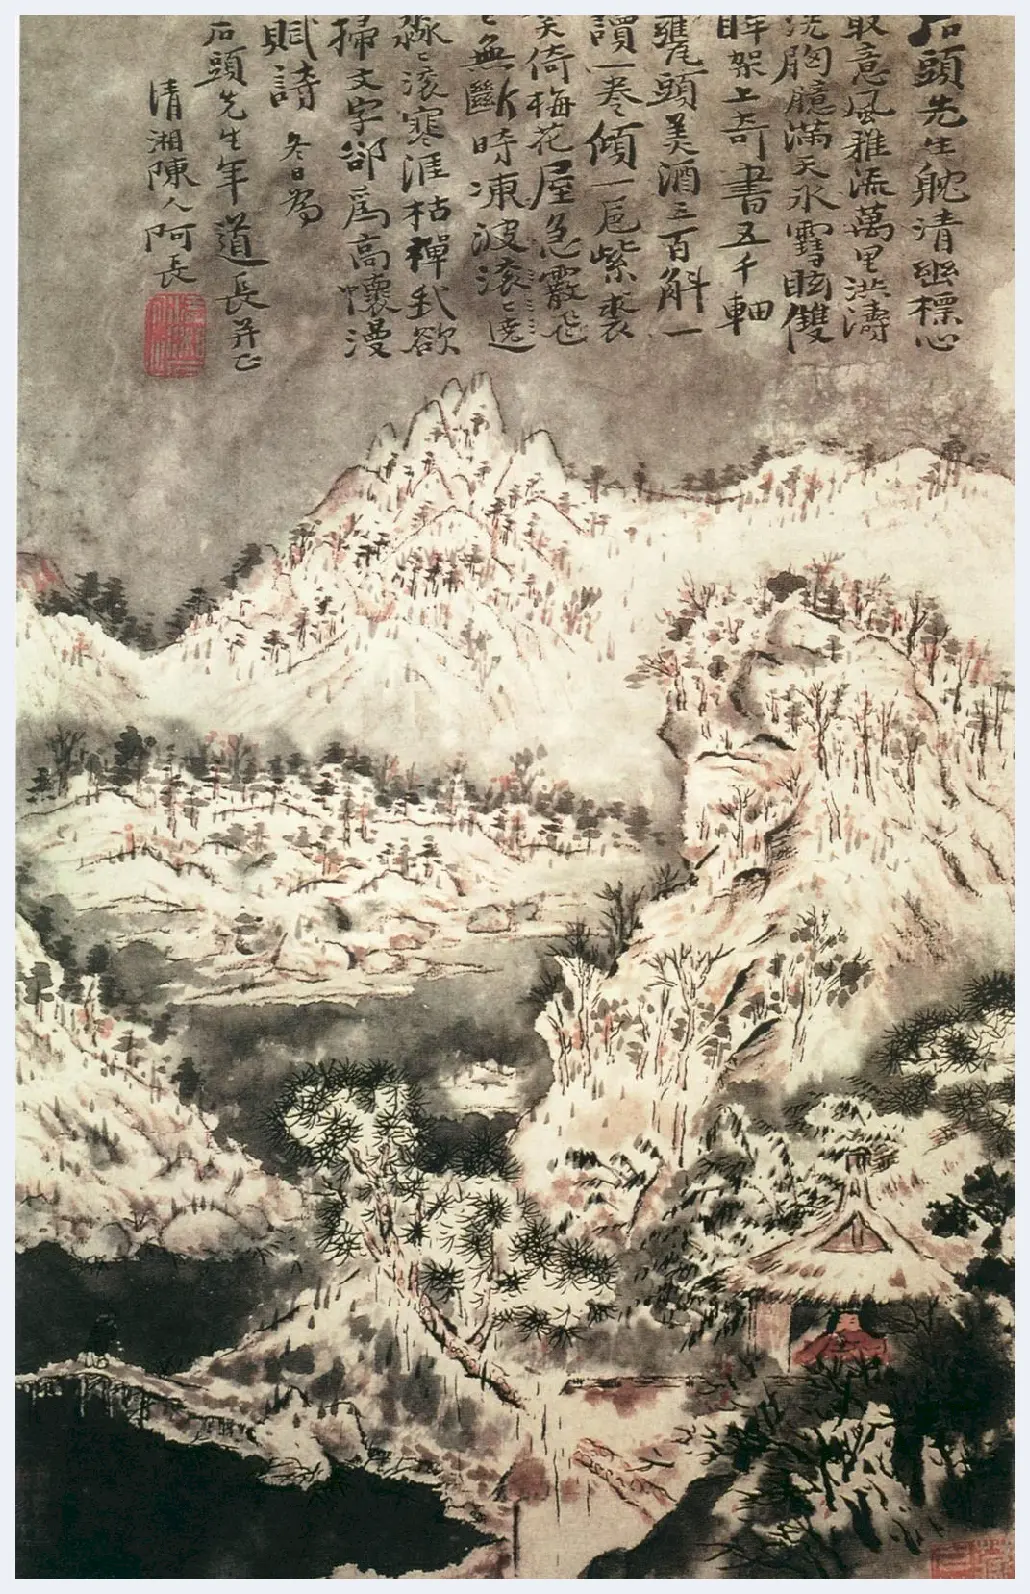 石頭先生耽清幽標心
取意風雅流萬里洪濤
洗胸臆滿天氷雪眩雙
眸架上奇書五千軸
甕頭美酒三百斛一
讀一卷傾一卮紫裘
笑倚梅花屋急霰飛
〻無斷時凍波滚〻遶
淼〻滚寒涯枯禪我欲
掃文字卻爲高懷漫
賦詩 冬日為
石頭先生年道長并正
清湘陳人阿長